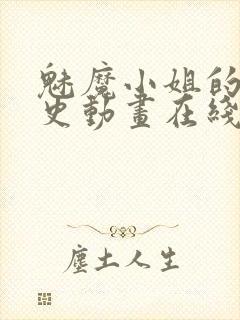 魅魔小姐的
史動畫在綫
塵土人生